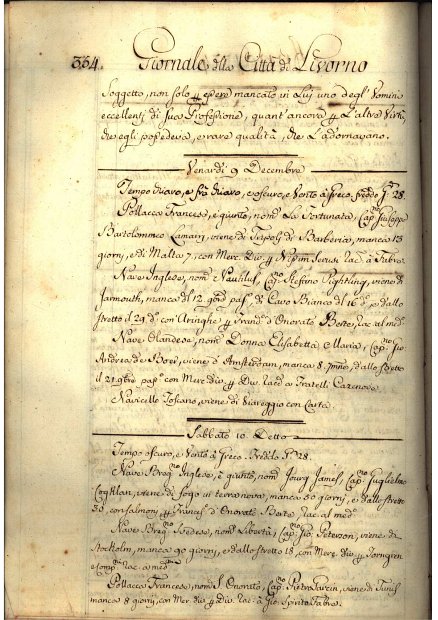 334. Giornale della Città di Livorno
Soggetto, non solo p essere mancato in Lui uno degl' Uomini
eccellenti di sua Professione, quant' ancora p L'altre Virtù,
che egli possedeva, e rare qualità, che L'adornavano.
Venardi 9 Decembre
Tempo chiaro, e frà chiaro, e oscuro, e Vento à Greco. Freddo 28.
Pollacca Francese, è giunto, nom. La Fortunata, Cap.no Giuseppe
Bartolommeo Lamary, viene di Tripoli di Barberia, manca 13
giorni, e di Malta 7, con Merc. Div. p
Nave Inglese, nom. Nautilus, Cap.no Stefano Pightling, viene di
Jarmouth, manca di 12 pass. Cavo Bianco di 16 d.o, e dallo
stretto il 29 d.o con Aringhe, p Franc.o d'Onorato Berte, rac. al med.
Nave Olandese, nom. Donna Elisabetta Maria, Cap.no Gio
Andrea de Boer, viene d'Amsterdam, manca 8. e dallo stretto
il 21 9bre pap.o con Merc. div. p Div. rac.a a Fratelli Cazenove
Navicello Toscano, viene di Viareggio con Carta.
Sabbato 10. Detto
Tempo oscuro, e Vento à Greco. Freddo 28.
Nave Brig.no Inglese, è giunto, nom. Jourg James, Cap.no Guglielmo
Coghlan, viene di fogo in terranova, manca 50 giorni, e dallo stretto
30, con salmoni, p Franc. d'Onorato Berte rac. al med.o
Nave Brig.no Svedese, nom. Libertà, Cap.no Gio. Peterson, viene di
Stockolm, manca 90 giorni, e dallo stretto 18, con Merc. div. p Torngren
e comp. rac. a med.mi
Pollacca Francese, nom. S. Onorato, Cap.no Pietro Garcin, viene di Tunisi
manca 8 giorni, con Mer. div. p Div. rac. à Gio. Spirito Fabre.